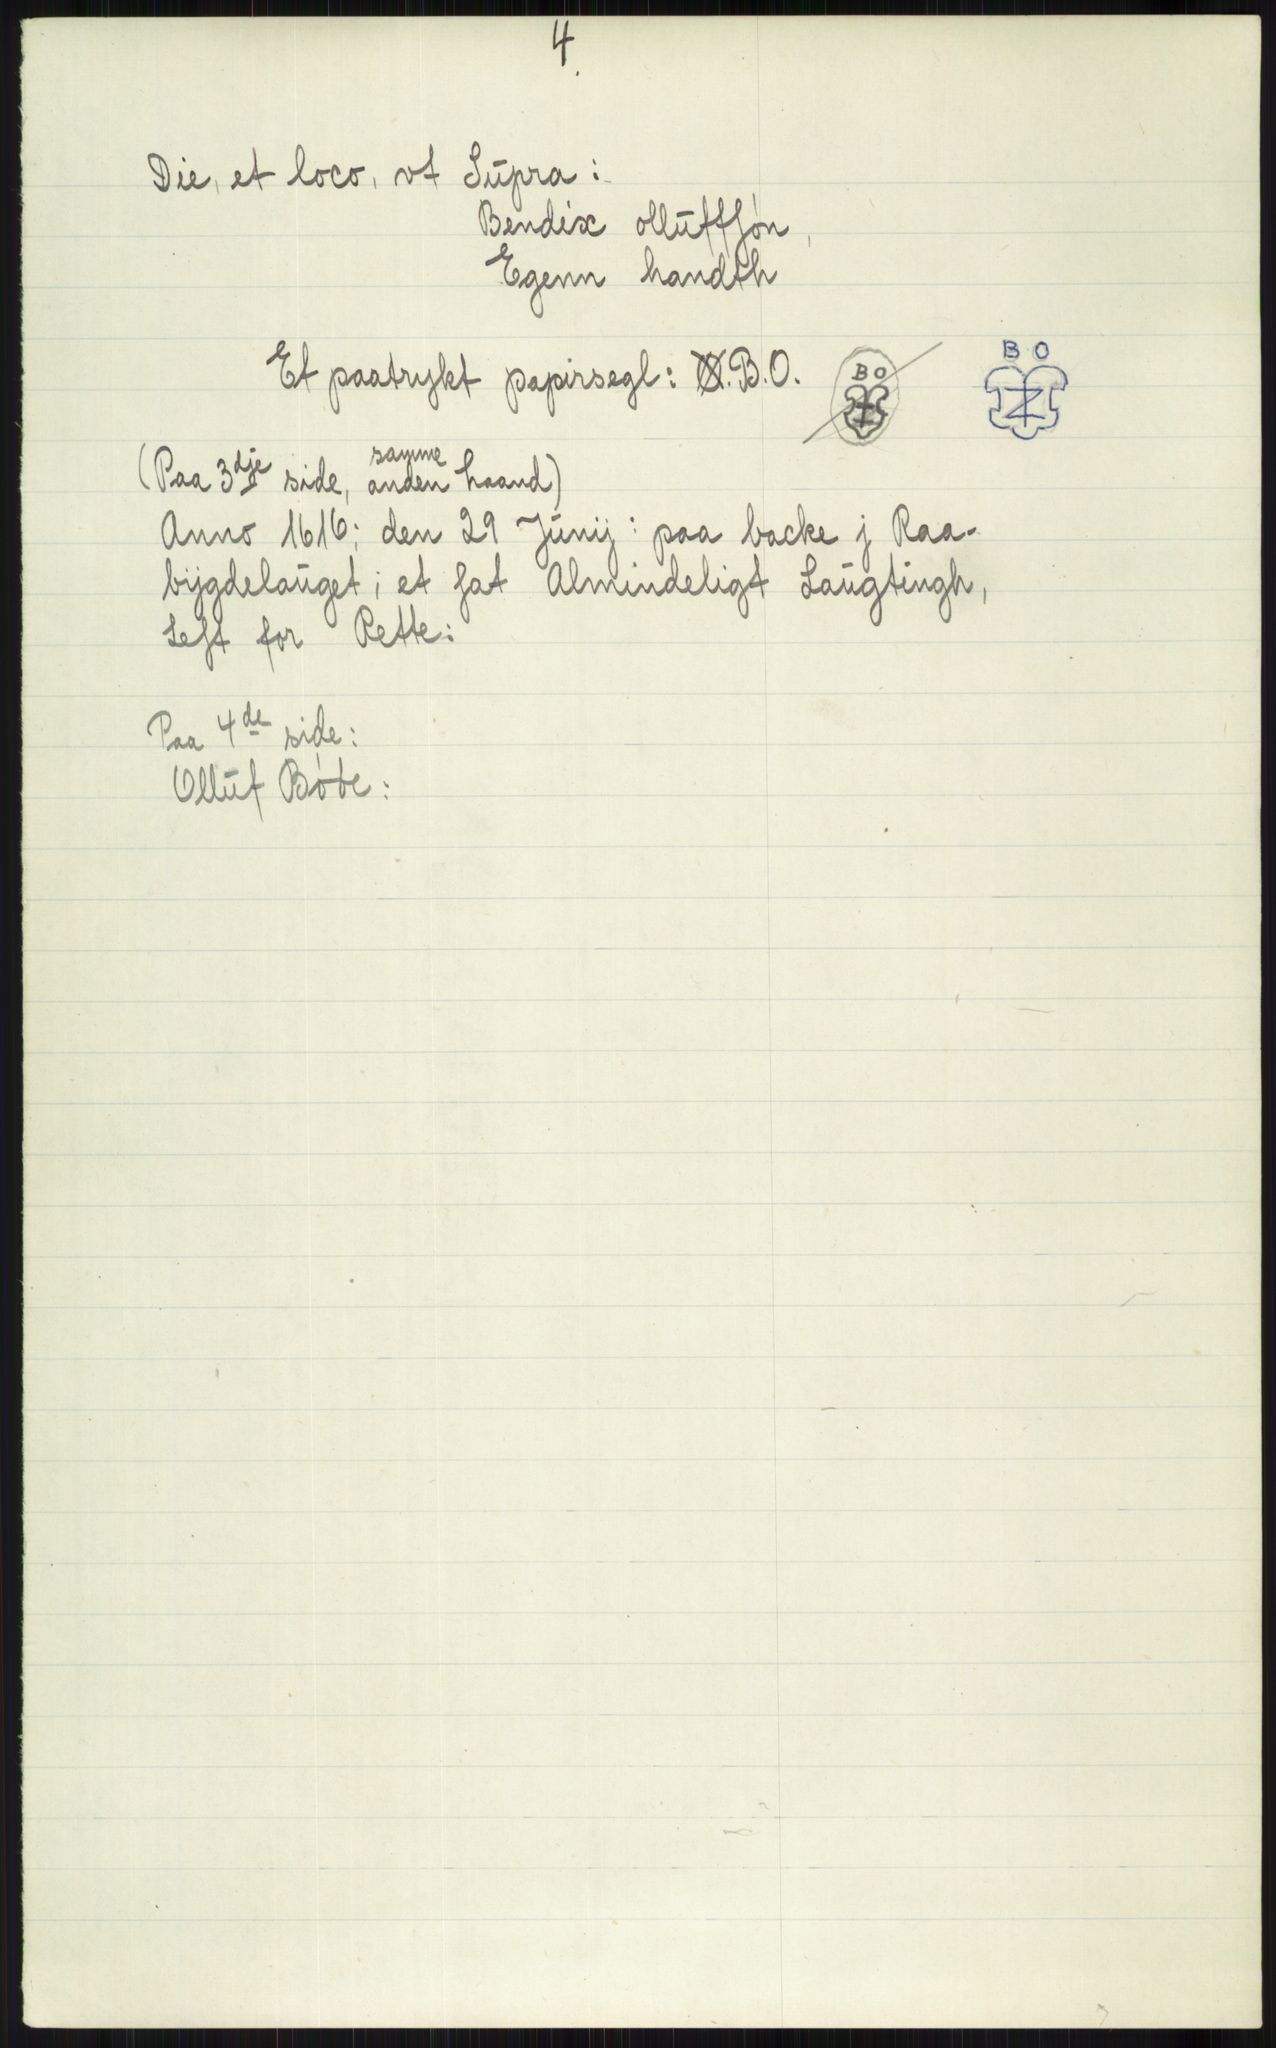 4.
Die, et loco, vt Sūpra:
Bendix ollūffsøn,
Egenn handth
Et paatrykt papirsegl: B.O.
B O
B O
(Paa 3dje side, samme anden haand)
Anno 1616; den 29 Jūnij: paa backe j Raa-
bijgdelaūget; et sat Almindeligt Laūgtingh,
Lest for Rette:
Paa 4de side:
Ollūf Bøte: